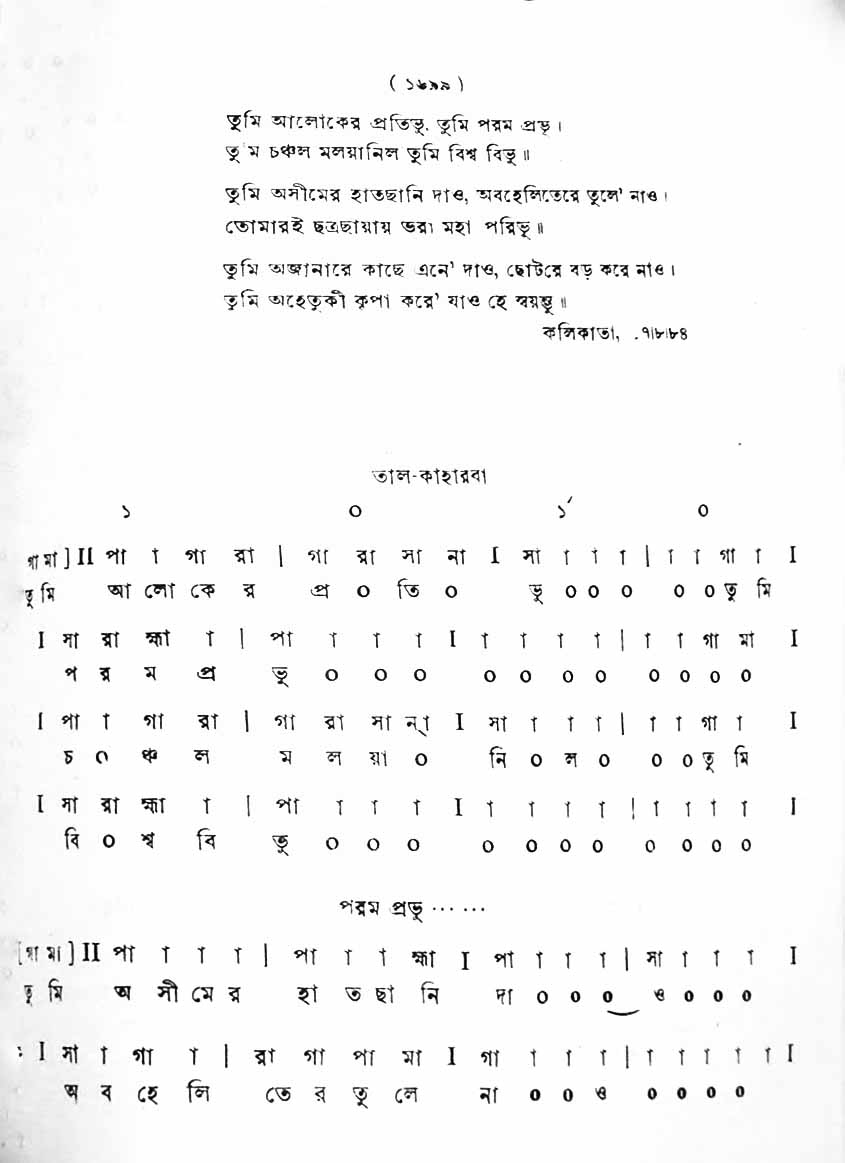 ( ১৬৯৯ )
তুমি আলোকের প্রতিভূ, তুমি পরম প্রভূ ।
তুমি চঞ্চল মলয়ানিল তুমি বিশ্ব বিভূ ॥
তুমি অসীমের হাতছানি দাও, অবহেলিতেরে তুলে' নাও ।
তোমারই ছত্রছায়ায় ভরা মহা পরিভূ ॥
তুমি অজানারে কাছে এনে' দাও, ছোটরে বড় করে নাও ।
তুমি অহেতুকী কৃপা করে' যাও হে স্বয়ম্ভূ ॥
কলিকাতা, .৭।৮।৮৪
তাল-কাহারবা
১ ০ ১́ ০
গা মা ] II পা া গা রা | গা রা সা না I সা া া া | া া গা া I
তু মি আ লো কে র প্র ০ তি ০ ভূ ০ ০ ০ ০ ০ তু মি
I সা রা হ্মা া | পা া া া I া া া া | া া গা মা I
প র ম প্র ভূ ০ ০ ০ ০ ০ ০ ০ ০ ০ ০ ০
I পা া গা রা | গা রা সা ন্া I সা া া া | া া গা া I
চ ০ ঞ্চ ল ম ল য়া ০ নি ০ ল ০ ০ ০ তু মি
I সা রা হ্মা া | পা া া া I া া া া | া া া া I
বি ০ শ্ব বি ভূ ০ ০ ০ ০ ০ ০ ০ ০ ০ ০ ০
পরম প্রভূ ... ...
[ গা মা ] II পা া া া | পা া া হ্মা I পা া া া | সা া া া I
তু মি অ সী মে র হা ত ছা নি দা ০ ০ ০ ও ০ ০ ০
: I সা া গা া | রা গা পা মা I গা া া া | া া া া া I
অ ব হে লি তে র তু লে না ০ ০ ও ০ ০ ০ ০